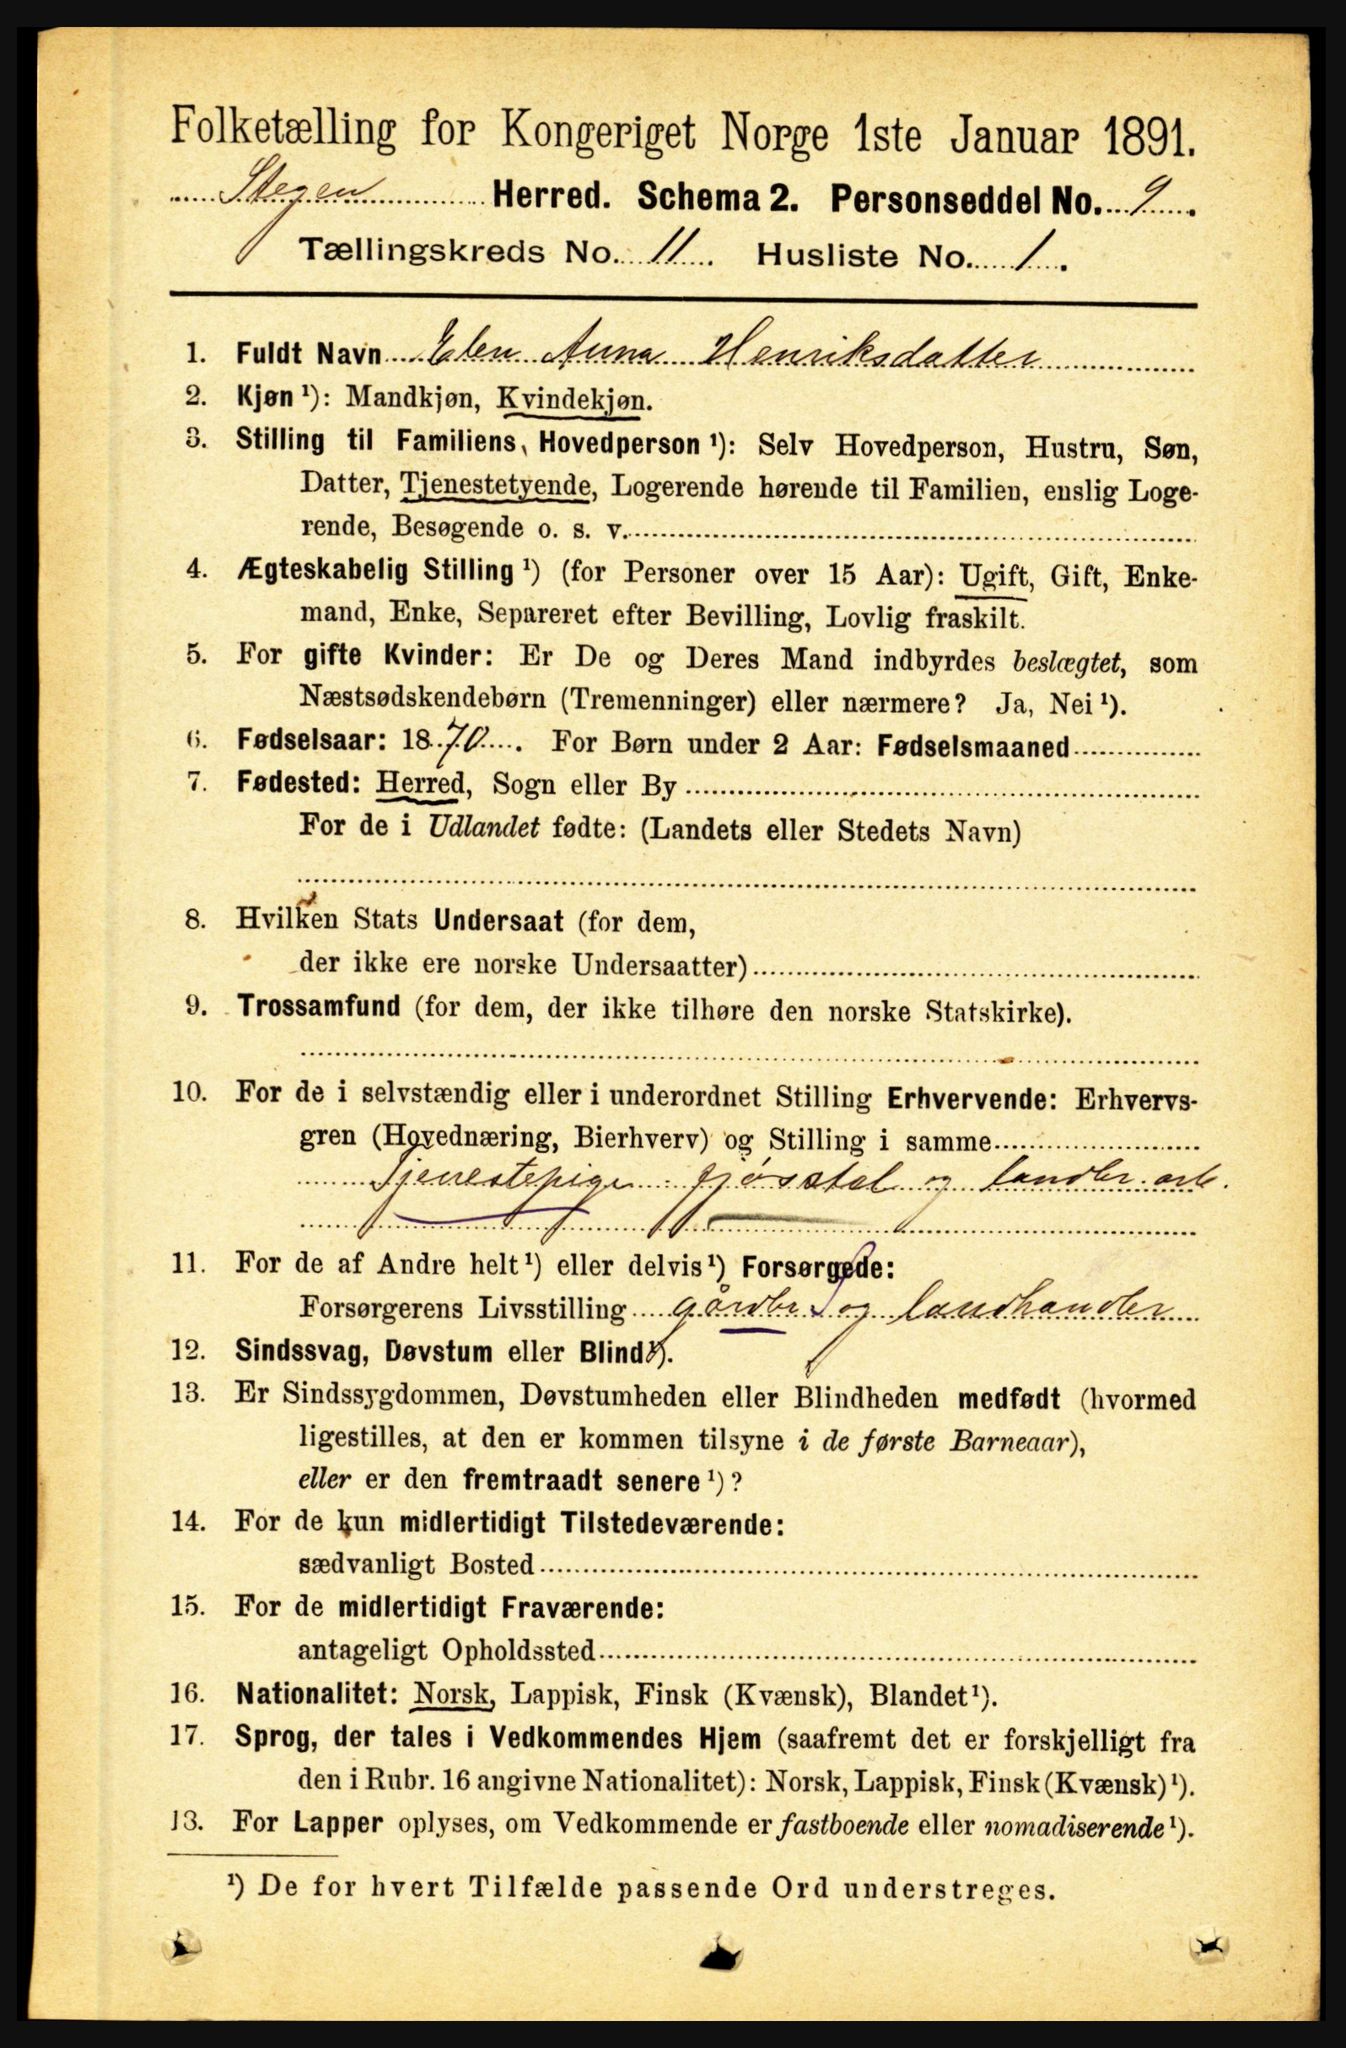 Folketælling for Kongeriget Norge 1ste Januar 1891.
Stegen Herred. Schema 2. Personseddel No. 9.
Tællingskreds No. 11. Husliste No. 1.
1. Fuldt Navn Elen Anna Henriksdatter
2. Kjøn ¹): Mandkjøn, Kvindekjøn.
3. Stilling til Familiens Hovedperson ¹): Selv Hovedperson, Hustru, Søn,
Datter, Tjenestetyende, Logerende hørende til Familien, enslig Loge-
rende, Besøgende o. s. v.
4. Ægteskabelig Stilling ¹) (for Personer over 15 Aar): Ugift, Gift, Enke-
mand, Enke, Separeret efter Bevilling, Lovlig fraskilt.
5. For gifte Kvinder: Er De og Deres Mand indbyrdes beslægtet, som
Næstsødskendebørn (Tremenninger) eller nærmere? Ja, Nei ¹).
6. Fødselsaar: 1870. For Børn under 2 Aar: Fødselsmaaned
7. Fødested: Herred, Sogn eller By
For de i Udlandet fødte: (Landets eller Stedets Navn)
8. Hvilken Stats Undersaat (for dem,
der ikke ere norske Undersaatter)
9. Trossamfund (for dem, der ikke tilhøre den norske Statskirke).
10. For de i selvstændig eller i underordnet Stilling Erhvervende: Erhvervs-
gren (Hovednæring, Bierhverv) og Stilling i samme
Tjenestepige fjøsstel og landbr. arb.
11. For de af Andre helt ¹) eller delvis ¹) Forsørgede:
Forsørgerens Livsstilling gårdbr og landhandler
12. Sindssvag, Døvstum eller Blind ¹).
13. Er Sindssygdommen, Døvstumheden eller Blindheden medfødt (hvormed
ligestilles, at den er kommen tilsyne i de første Barneaar),
eller er den fremtraadt senere ¹)?
14. For de kun midlertidigt Tilstedeværende:
sædvanligt Bosted
15. For de midlertidigt Fraværende:
antageligt Opholdssted
16. Nationalitet: Norsk, Lappisk, Finsk (Kvænsk), Blandet ¹).
17. Sprog, der tales i Vedkommendes Hjem (saafremt det er forskjelligt fra
den i Rubr. 16 angivne Nationalitet): Norsk, Lappisk, Finsk (Kvænsk) ¹).
13. For Lapper oplyses, om Vedkommende er fastboende eller nomadiserende ¹).
¹) De for hvert Tilfælde passende Ord understreges.